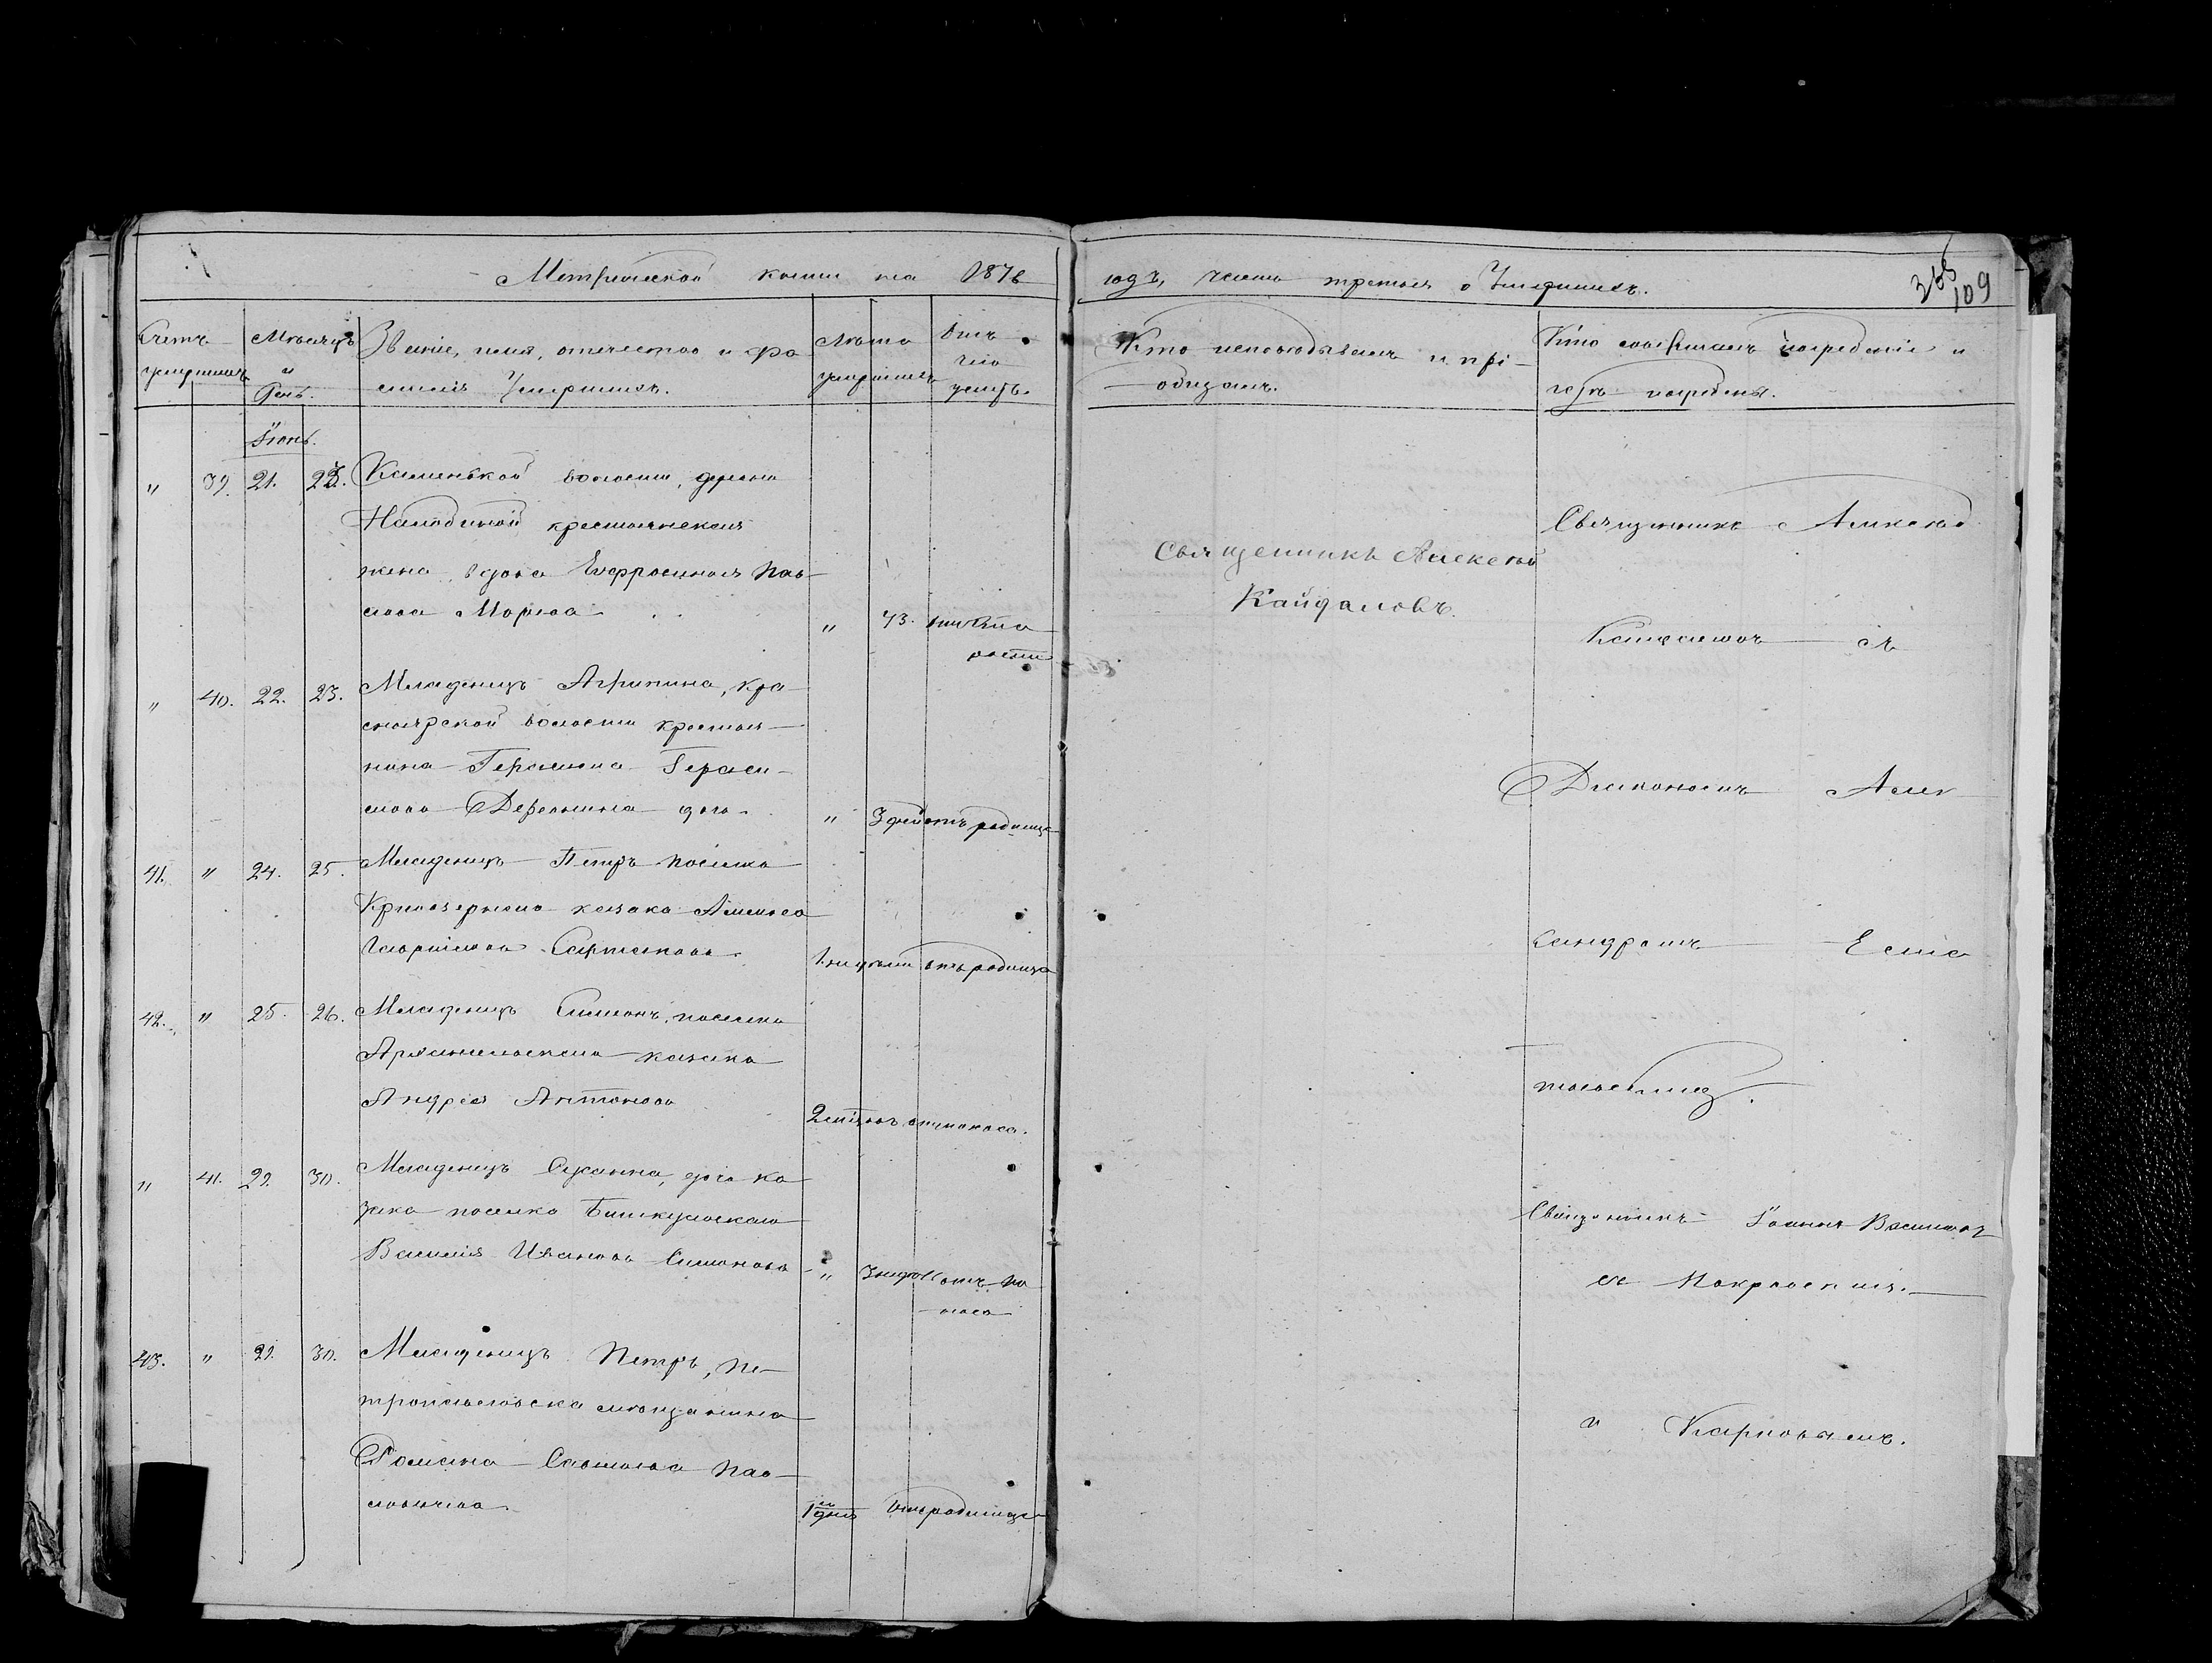 Метрической книги на 1876
годъ, часть третья о Умершихъ.
109
Счетъ умершихъ
Мѣсяцъ и день.
Званіе, имя, отчество и фа-
милія Умершихъ.
Лѣта умершихъ
Отъ чего умеръ.
Кто исповѣдывалъ и прі-
общалъ.
Кто совершалъ погребеніе и
гдѣ погребены.
Іюнь.
" 39. 21. 23. Каминской волости, деревни
Налобиной крестьянская
жена, вдова Евфросинія Пав-
лова Морева " 73. отъ ста
рости
Священникъ Алексѣй
Кайдаловъ.
Священникъ Алексѣй
Кайдаловъ съ
" 40. 22. 23. Младенецъ Агрипина, Кра-
сноярской волости крестья-
нина Герасима Гераси-
мова дочь. " 3 дней отъ родимца
Діакономъ Алек
41. " 24. 25. Младенецъ Петръ поселка
Кривозернаго казака Алексѣя
Гаврилова Сартакова. 1 недѣли отъ родимца
сандромъ
42. " 25. 26. Младенецъ Симеонъ, поселка
Архангельскаго казака
Андрея Антонова 2 отъ поноса.
" 41. 29. 30. Младенецъ Сусанна, дочь ка
зака поселка Бишкульскаго
Василія Иванова Симонова " 3 недѣл отъ по
носа
Священникъ Іоаннъ Васильевъ
съ Покровскимъ
43. " 29. 30. Младенецъ Петръ, Пе-
тропавловска мѣщанина
Романа Савельева Пав-
1 дня отъ родимца
и Карповымъ.